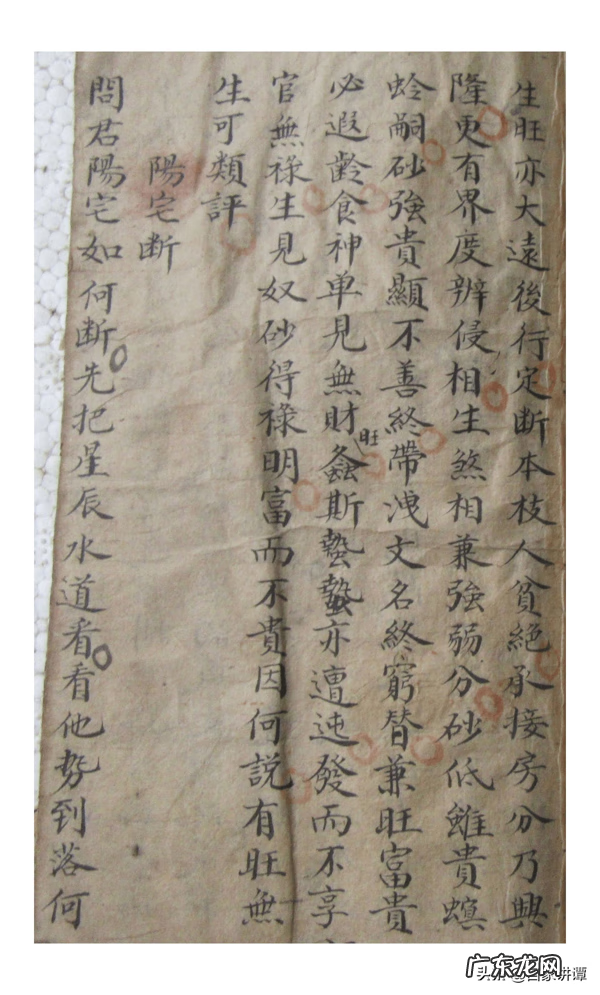 生旺亦大遠後行定断本枝人貧絶承接房分乃興
隆更有界度辨侵相生煞相兼強弱分砂低雖貴螟
蛉嗣砂強貴顯不善終帶洩文名終窮替兼旺富貴
必遐齡食神单見無財旺螽斯蟄蟄亦遭迍發而不享
官無祿生見奴砂得祿明富而不貴因何説有旺無
生可類評
陽宅断
問君陽宅如何断先把星辰水道看看他勢到落何
广东龙网
头条@百家讲谭